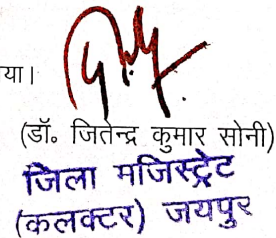 या।
(डॉ॰ जितेन्द्र कुमार सोनी)
जिला मजिस्ट्रेट
(कलक्टर) जयपुर